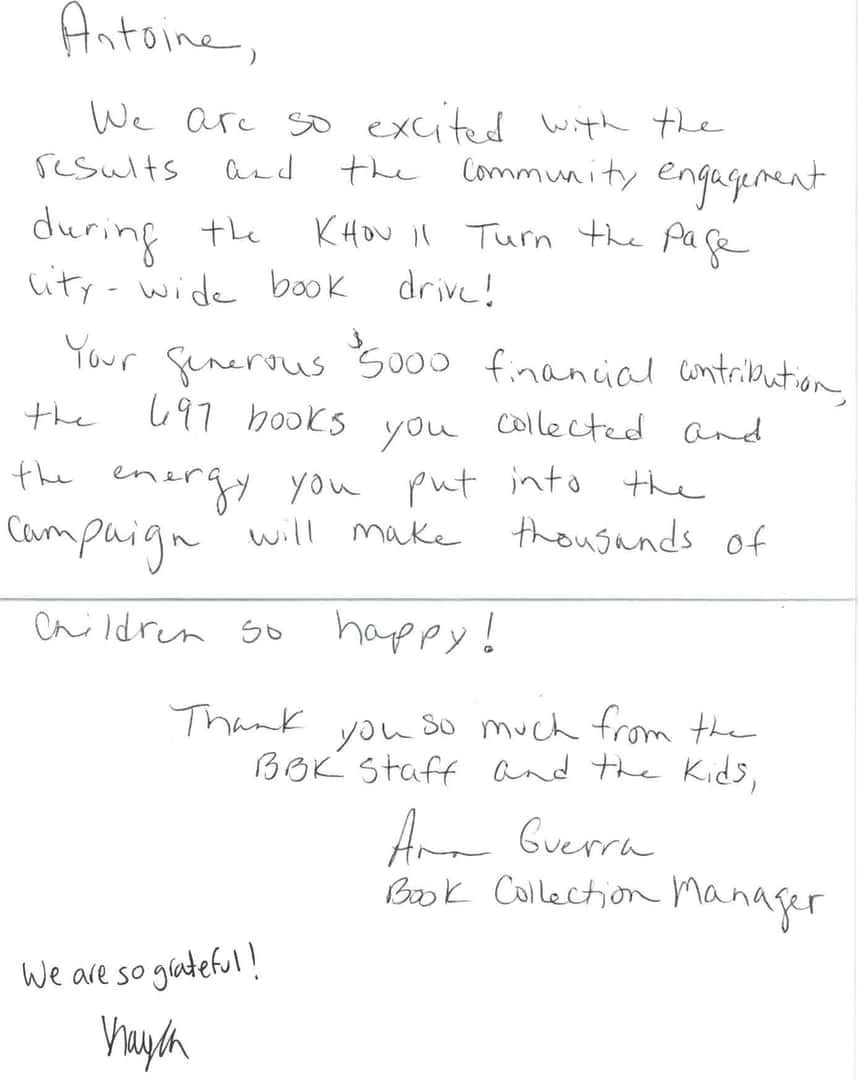 Antoine,
We are so excited with the
results and the community engagement
during the KHOU 11 Turn the Page
city-wide book drive!
Your generous $5000 financial contribution,
the 697 books you collected and
the energy you put into the
campaign will make thousands of
children so happy!
Thank you so much from the
BBK Staff and the kids,
Guerra
Book Collection Manager
We are so grateful!